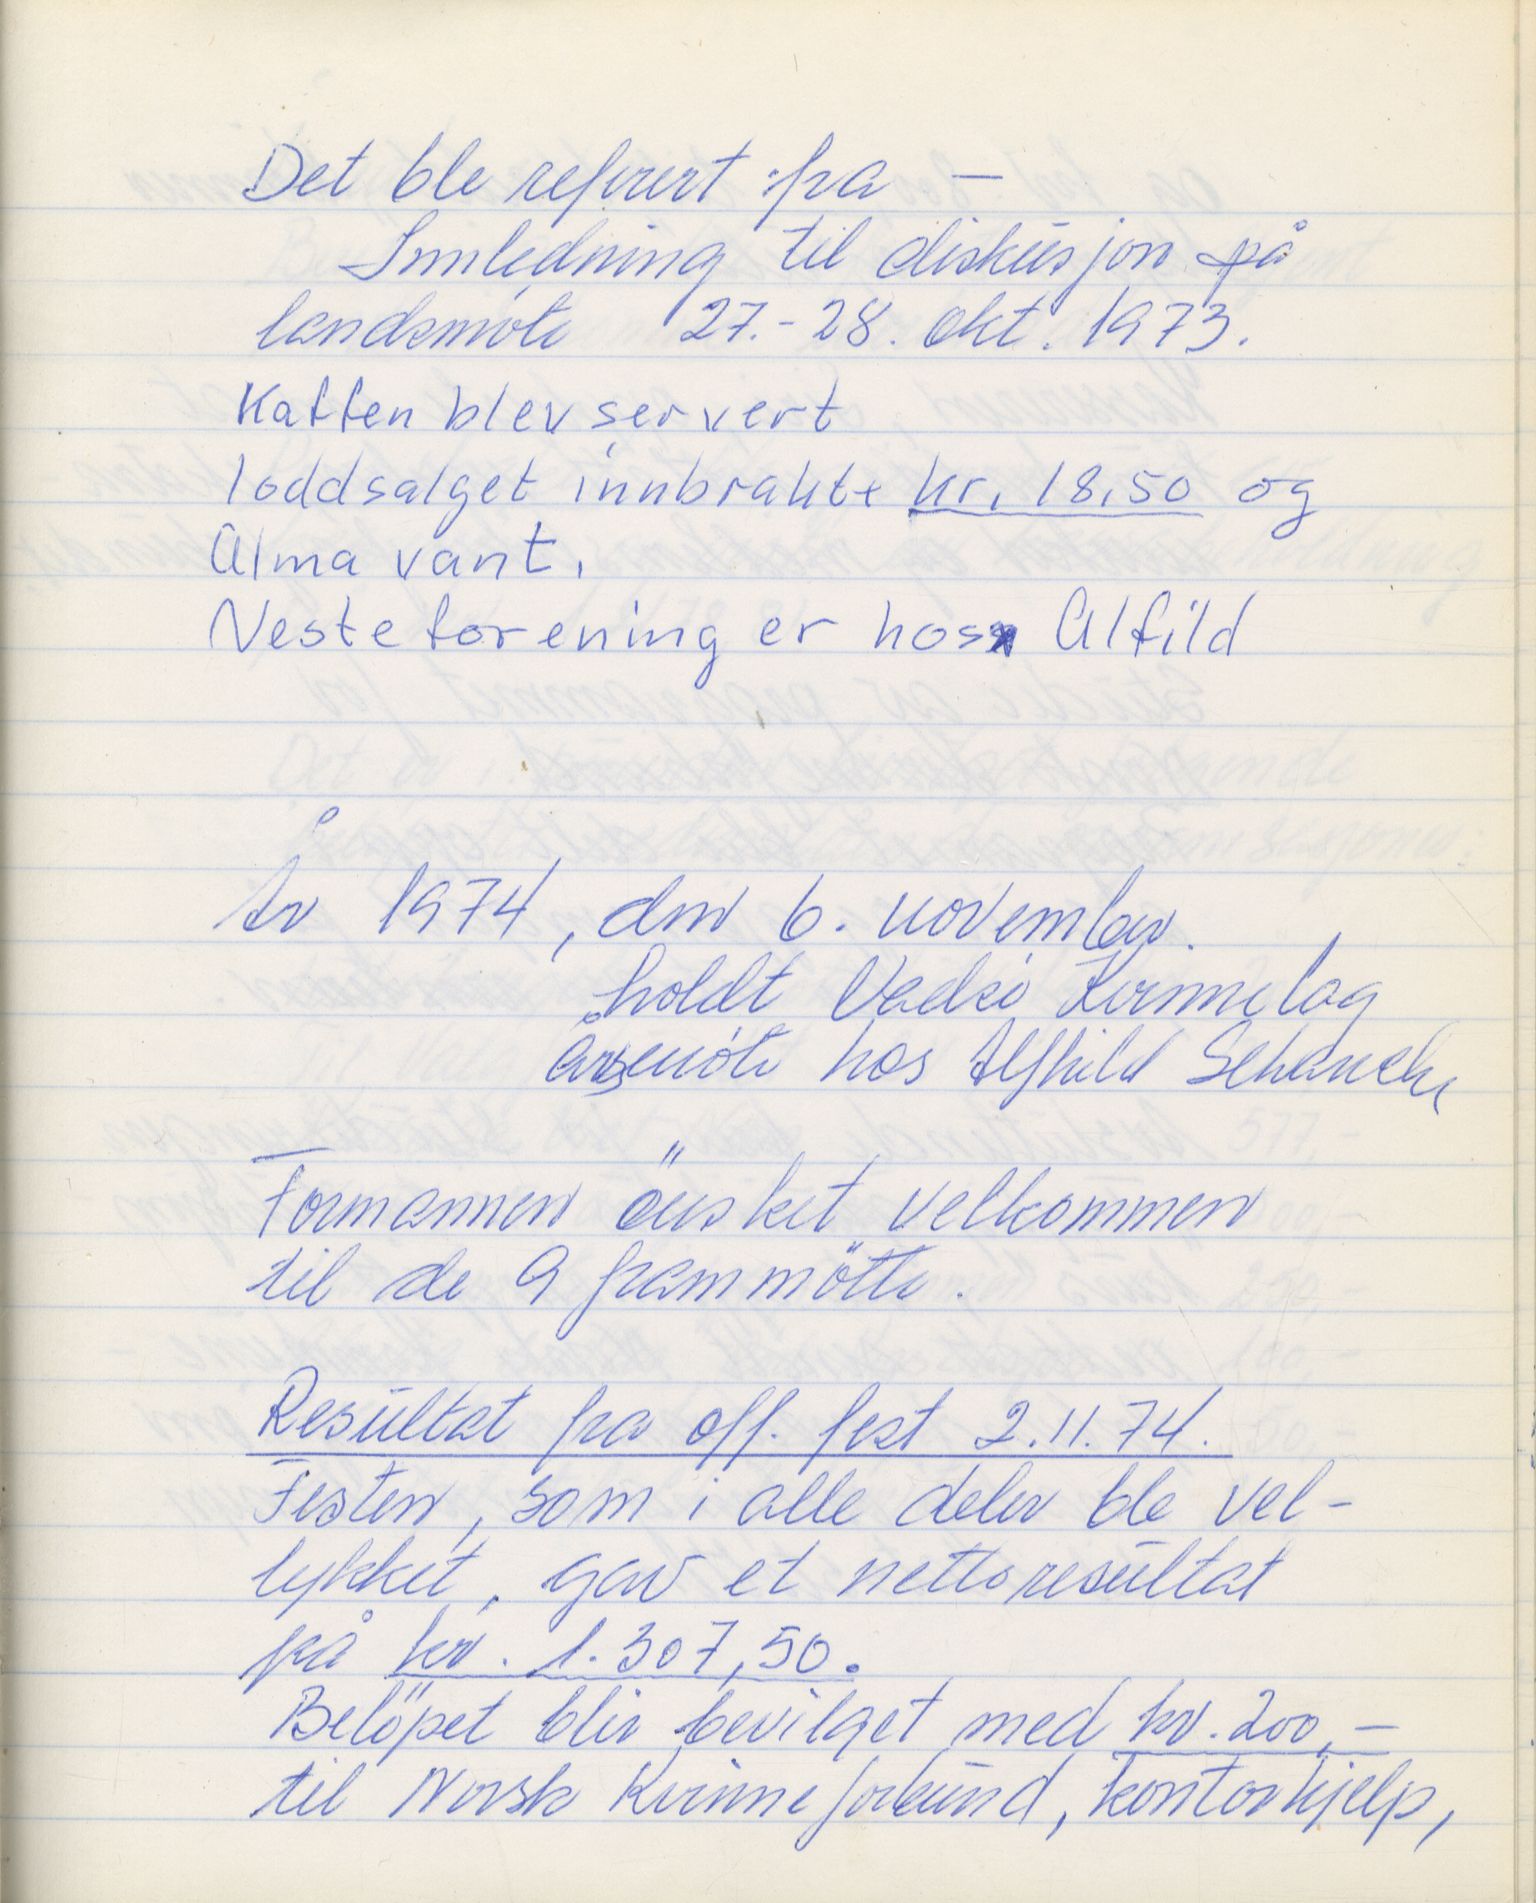 Det ble referert fra —
Innledning til diskusjon på
landsmöte 27.-28. okt. 1973.
Kaffen blev servert
loddsalget innbrakte kr. 18,50 og
Alma vant.
Neste forening er hos Alfild
År 1974, den 6. november.
holdt Vadsö Kvinnelag
årsmöte hos Alfhild Schancke
Formannen önsket velkommen
til de 9 frammötte.
Resultat fra off. fest 2.11.74.
Festen, som i alle deler ble vel-
lykket, gav et nettoresultat
på kr. 1.307,50.
Belöpet blir bevilget med kr. 200,-
til Norsk Kvinneforbund, kontorhjelp,